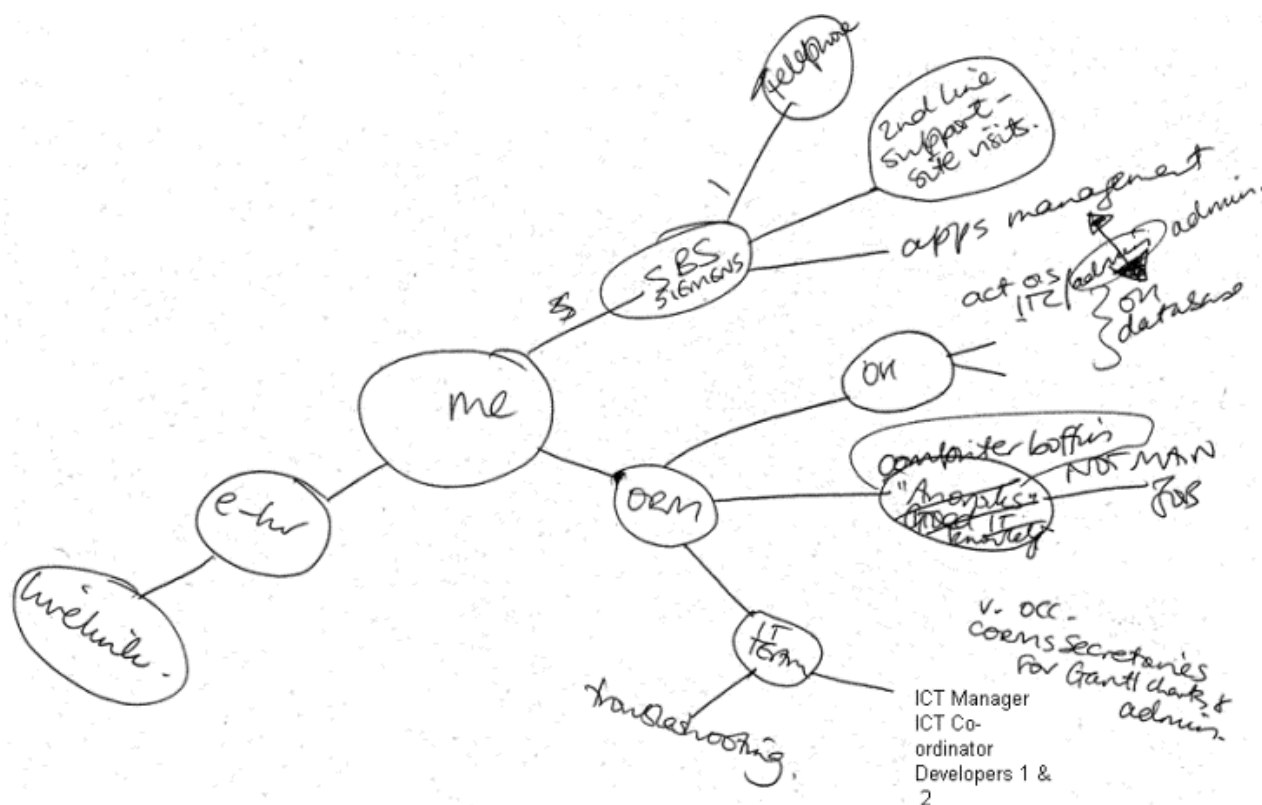 telephone
2nd line
support -
site visits.
apps management
SBS
SIEMENS
act as
admin
admin.
on
database
me
OH
computer boffin
NOT MAIN
JOB
ORM
e-hr
livelink.
IT
TEAM
troubleshooting.
v. occ.
CORMS secretaries
for Gantt charts &
admin.
ICT Manager
ICT Co-
ordinator
Developers 1 &
2